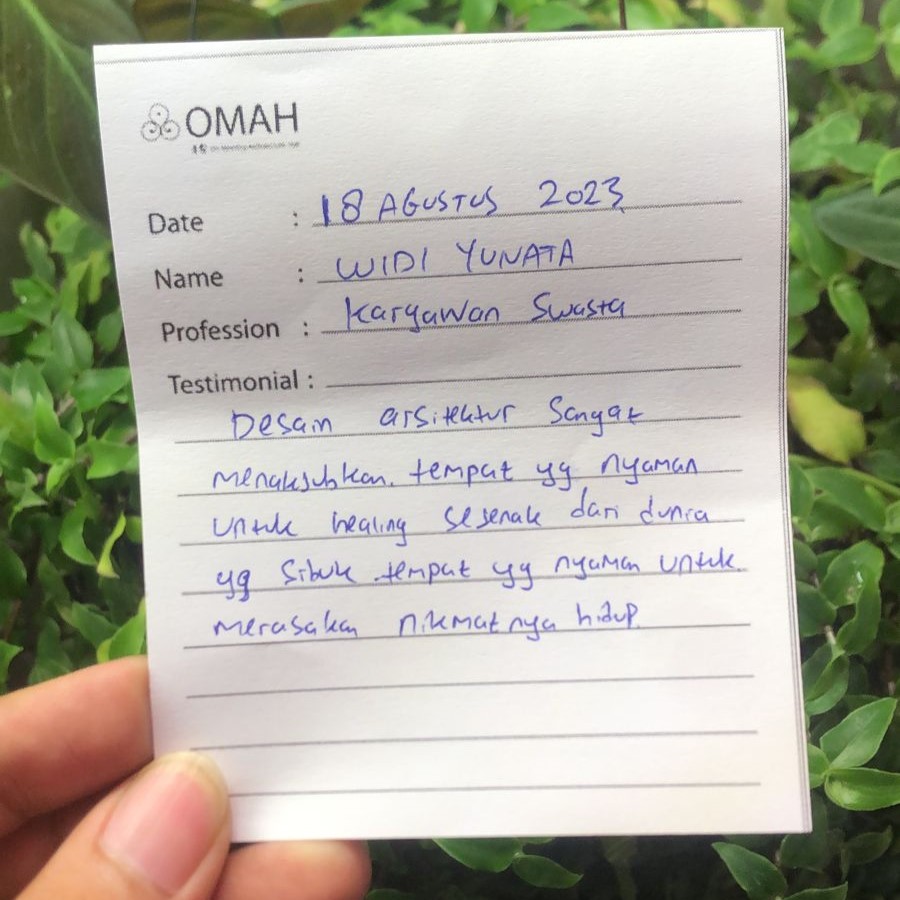 OMAH
Date : 18 AGUSTUS 2023
Name : WIDI YUNATA
Profession : Karyawan Swasta
Testimonial :
Desain arsitektur Sangat
menaksubkan. tempat yg nyaman
untuk healing sejenak dari dunia
yg sibuk tempat yg nyaman untuk
merasakan nikmatnya hidup